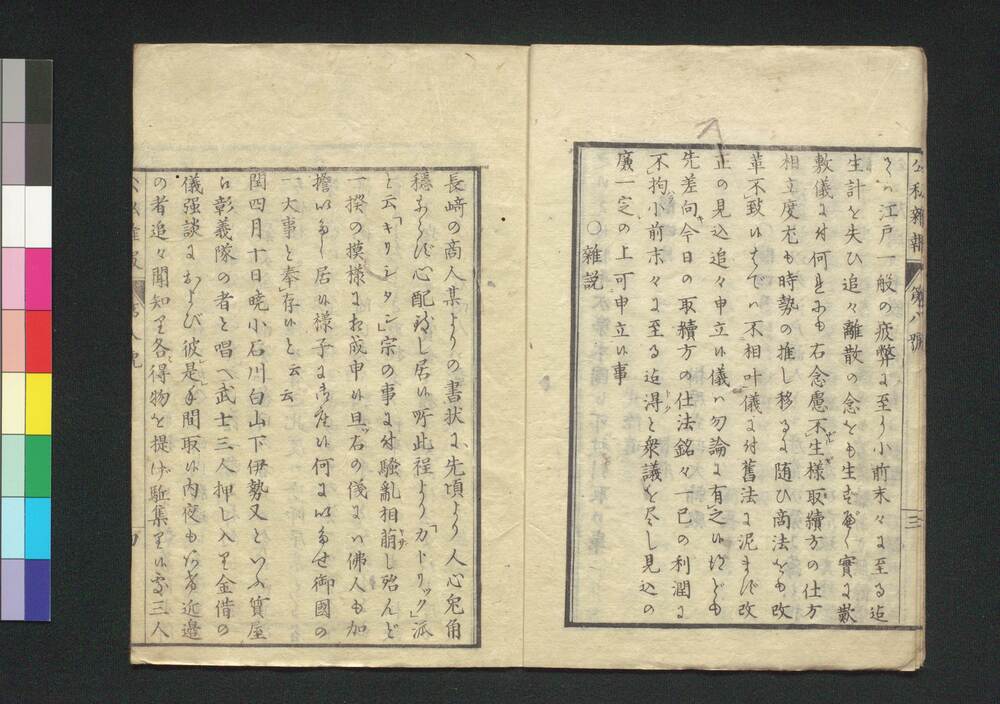 公私雜報 第八號 三
そハ江戸一般の疲弊ニ至り小前末々ニ至る迄
生計を失ひ追々離散の念をも生し 實に歎
敷儀ニ付何れニも右念慮不生様取續方の仕方
相立度尤も時勢の推し移るに随ひ商法をも改
革不致ハでハ不相叶儀ニ付舊法に泥まず改
正の見込追々申立候儀ハ勿論に有之候得ども
先差向今日の取續方の仕法銘々一已の利潤に
不拘小前末々ニ至る迄得と衆議を尽し見込の
廉一定の上可申立候事
○雑説
長崎の商人某よりの書状ニ先頃より人心兎角
穏あらず心配致し居候所此程より「カトリック」派
と云「キリシタン」宗の事ニ付騒亂相萠し殆んど
一揆の摸様にお成申候且右の儀にハ佛人も加
擔いたし居候様子に御座候何にいたせ御國の
一大事と奉存候と云云
閏四月十日暁小石川白山下伊勢又といふ質屋
に彰義隊の者と唱へ武士三人押し入り金借の
儀强談におよび彼是手間取候内夜も 近邉
の者追々聞知り各得物を提げ駈集り候処三人